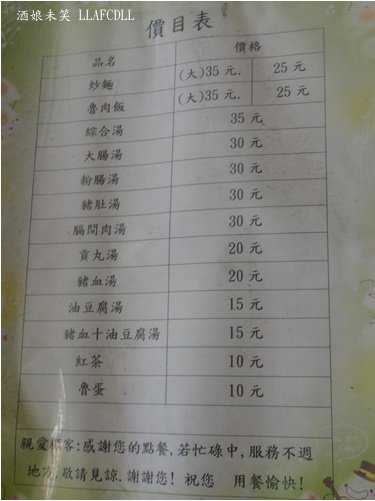 酒娘未笑 LLAFCDLL
價目表
品名 價格
炒麵 (大)35 元. 25 元
魯肉飯 (大)35 元. 25 元
綜合湯 35 元
大腸湯 30 元
粉腸湯 30 元
豬肚湯 30 元
膈間肉湯 30 元
貢丸湯 20 元
豬血湯 20 元
油豆腐湯 15 元
豬血十油豆腐湯 15 元
紅茶 10 元
魯蛋 10 元
親愛顧客:感謝您的點餐,若忙碌中,服務不週
地方,敬請見諒.謝謝您! 祝您 用餐愉快!